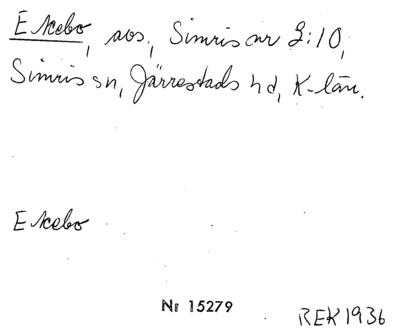 Ekebo, avs., Simris nr 2:10,
Simris sn, Järrestads hd, K-län.
Ekebo
Nr 15279
REK 1936